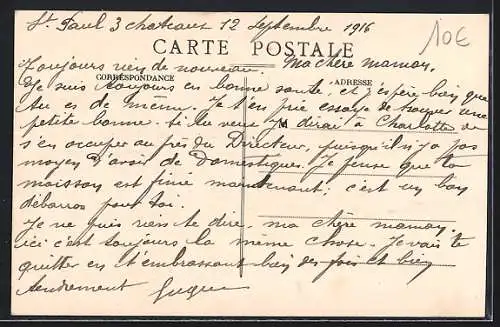 St Paul 3 chateaux 12 Septembre 1916
10€
CARTE POSTALE
Toujours rien de nouveau. Ma chère maman,
CORRESPONDANCE
ADRESSE
Je suis toujours en bonne santé, et j'espère bien que
tu es de même. Je t'en prie essaye de trouver une
petite bonne. Si tu veux je dirai à Charlotte de
s'en occuper auprès du Directeur, puisqu'il n'y a pas
moyen d'avoir de Domestiques. Je pense que ta
moisson est finie maintenant; c'est un bon
débarras pour toi.
Je ne puis rien te dire, ma chère maman,
ici c'est toujours la même chose. Je vais te
quitter en t'embrassant bien des fois et bien
tendrement